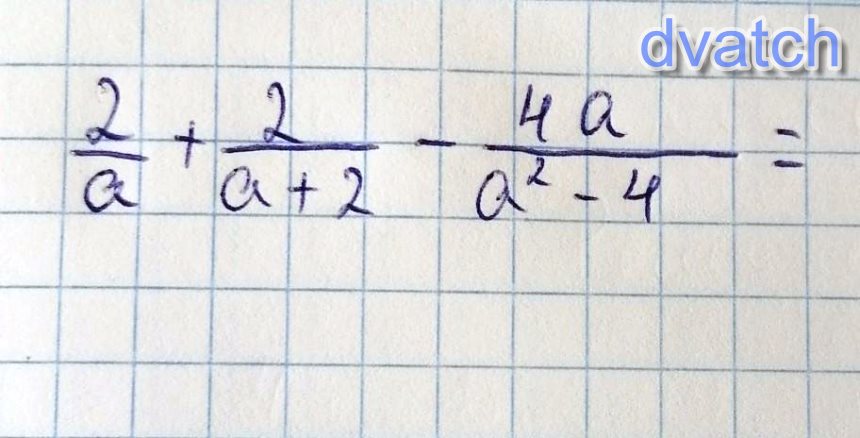 dvatch
2/a + 2/(a+2) - 4a/(a²-4) =